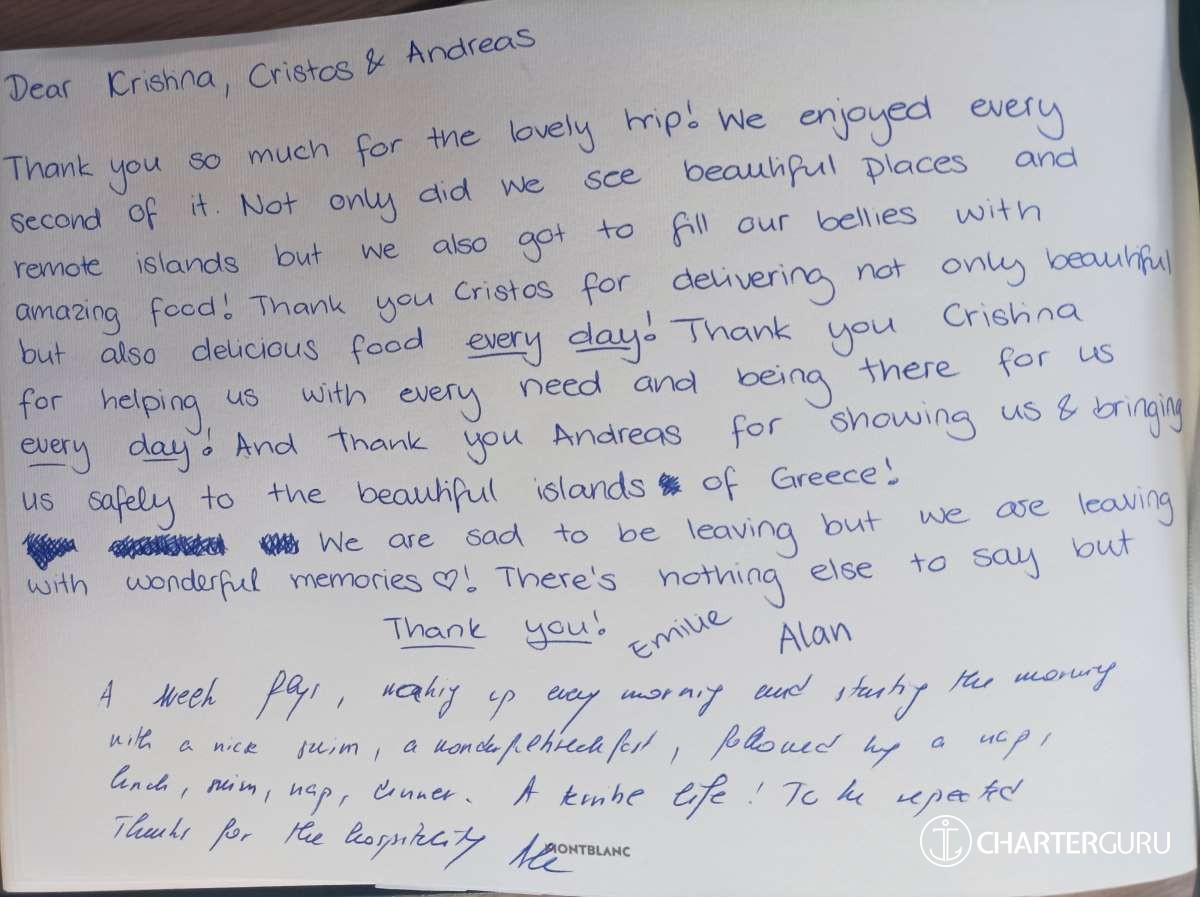 Dear Krishna, Cristos & Andreas
Thank you so much for the lovely trip! We enjoyed every
second of it. Not only did we see beautiful places and
remote islands but we also got to fill our bellies with
amazing food! Thank you Cristos for delivering not only beautiful
but also delicious food every day! Thank you Cristina
for helping us with every need and being there for us
every day! And thank you Andreas for showing us & bringing
us safely to the beautiful islands of Greece!
We are sad to be leaving but we are leaving
with wonderful memories ♡! There's nothing else to say but
Thank you! Emilie Alan
A week, waking up every morning and starting the morning
with a nice swim, a wonderful breakfast, followed by a nap,
lunch, swim, nap, dinner. A terrible life! To be repeated
Thanks for the hospitality
MONTBLANC
CHARTERGURU